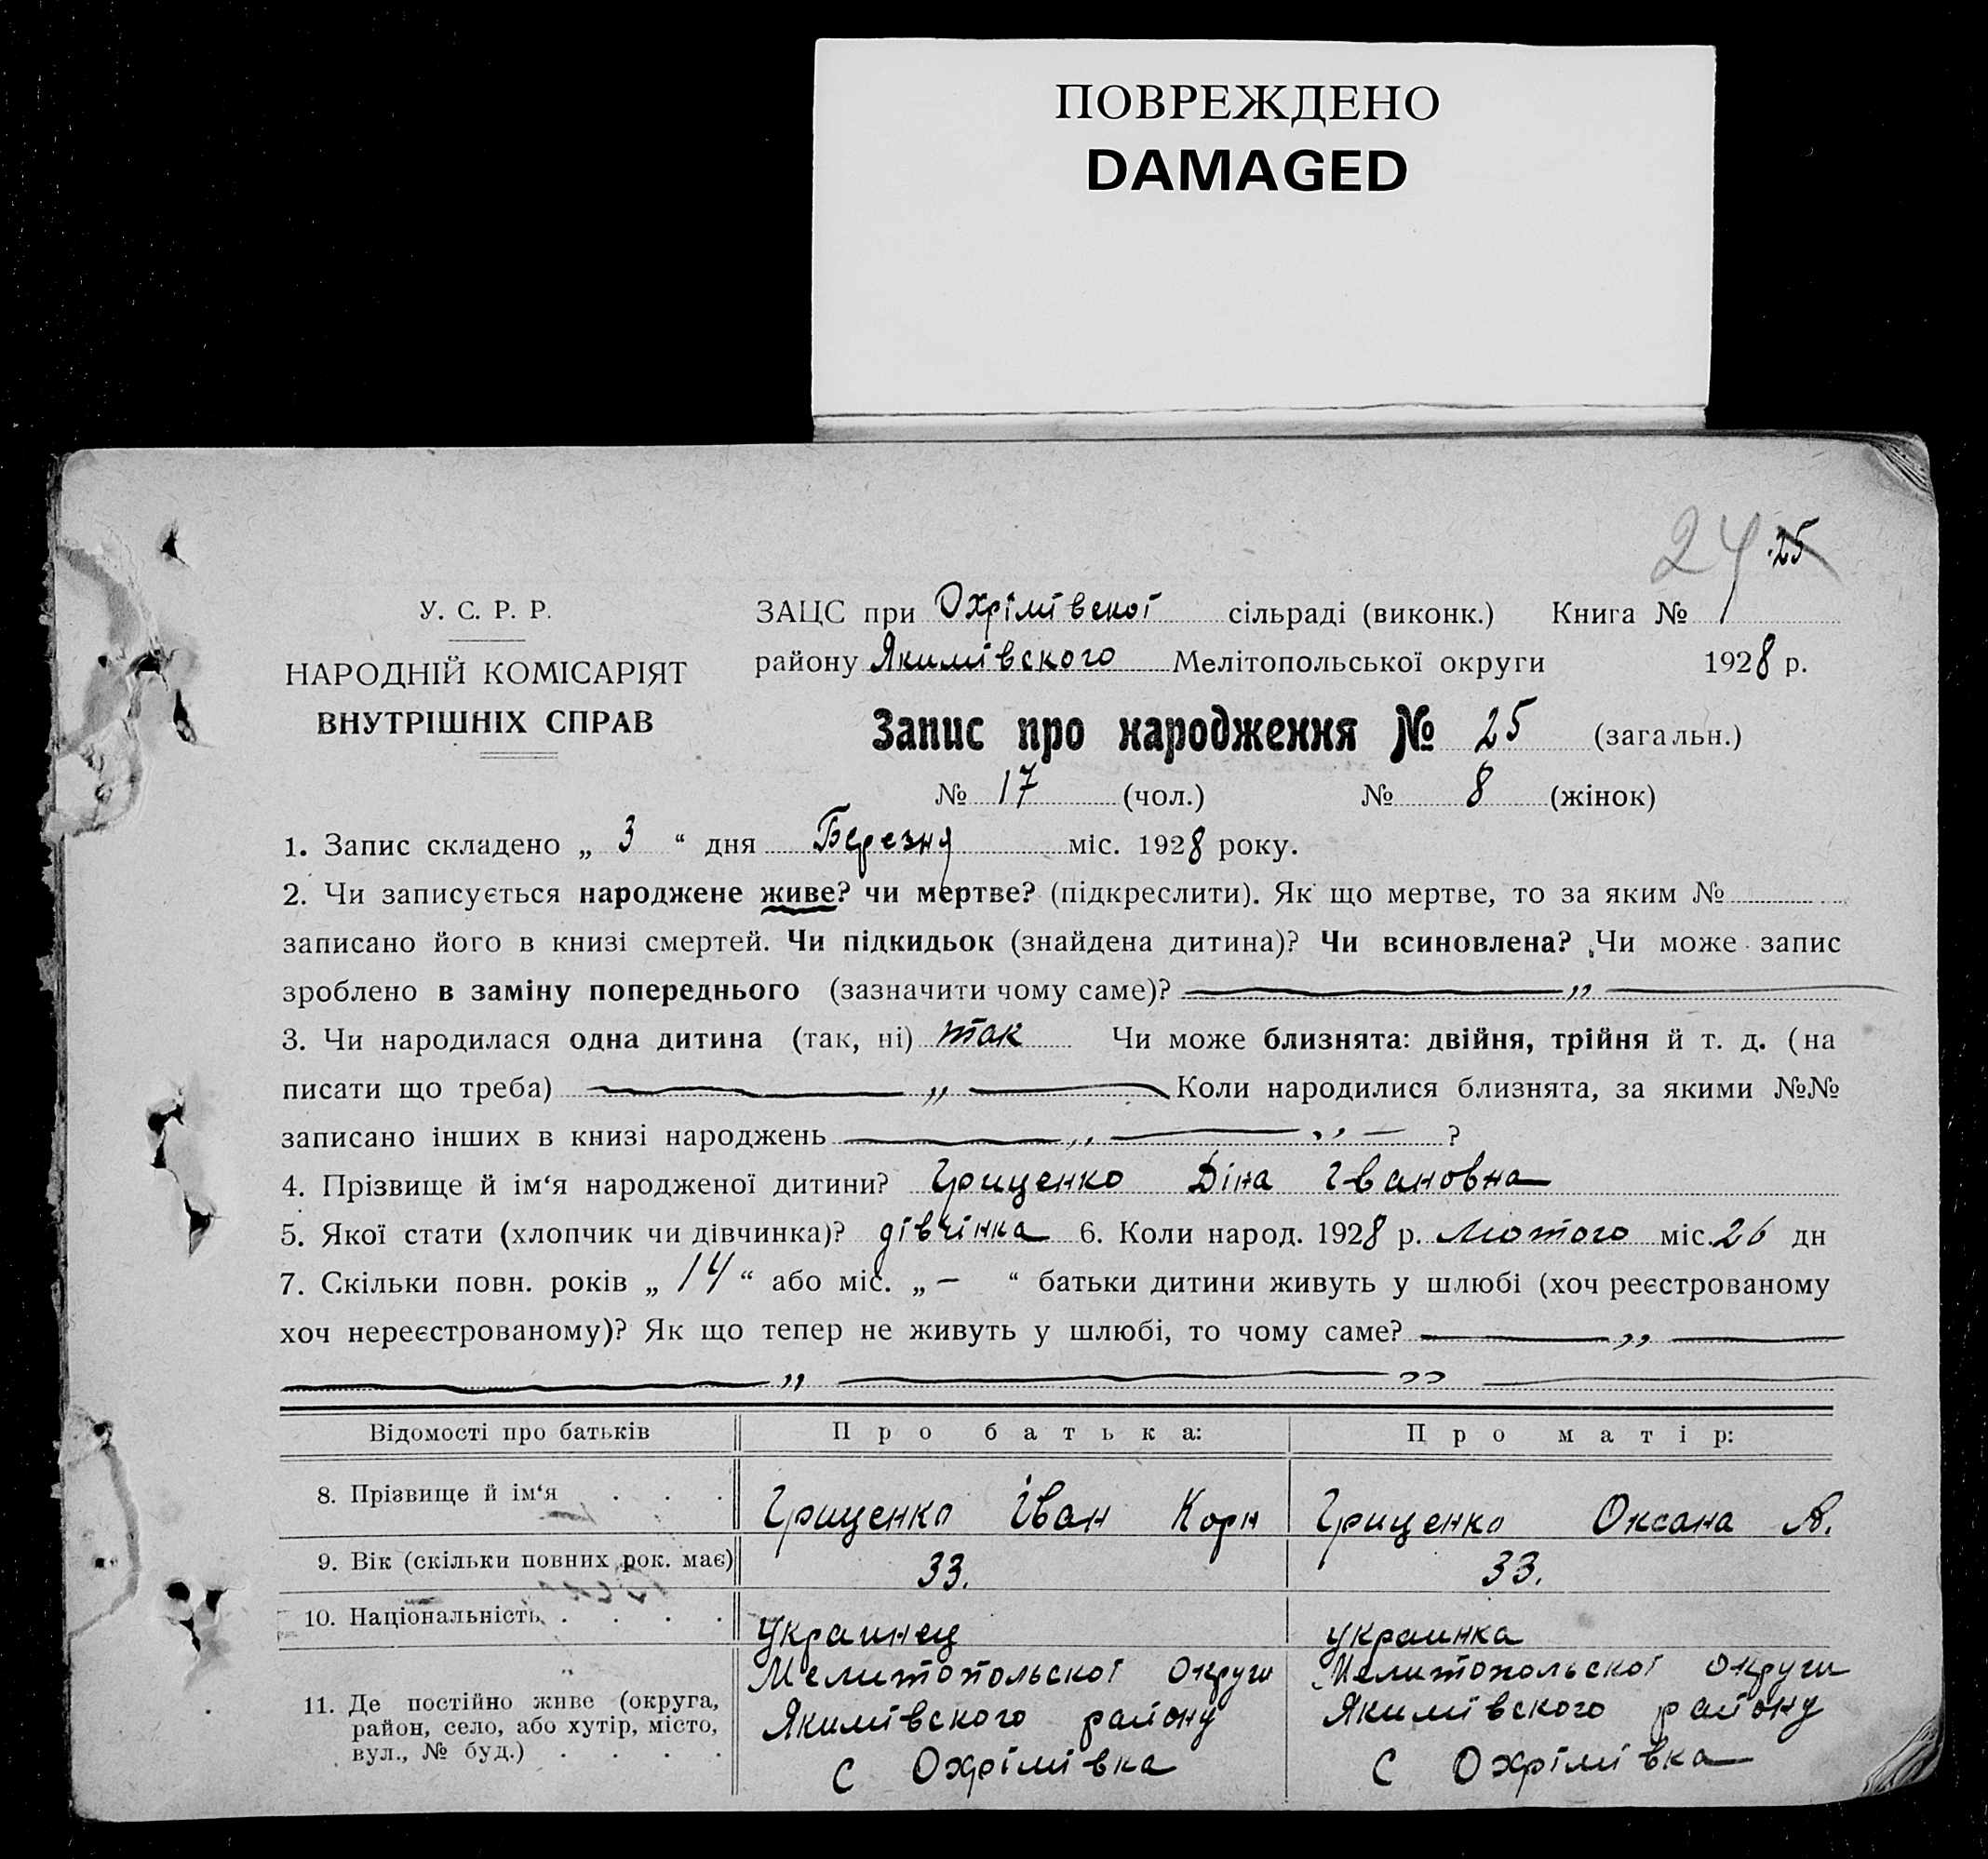 ПОВРЕЖДЕНО
DAMAGED
24 25
У. С. Р. Р.
НАРОДНІЙ КОМІСАРІЯТ
ВНУТРІШНІХ СПРАВ
ЗАЦС при Охрімівскої сільраді (виконк.) Книга № 1
району Якимівского Мелітопольської округи 1928 р.
Запис про народження № 25 (загальн.)
№ 17 (чол.) № 8 (жінок)
1. Запис складено „ 3 “ дня Березня міс. 1928 року.
2. Чи записується народжене живе? чи мертве? (підкреслити). Як що мертве, то за яким №
записано його в книзі смертей. Чи підкидьок (знайдена дитина)? Чи всиновлена? Чи може запис
зроблено в заміну попереднього (зазначити чому саме)? — „ —
3. Чи народилася одна дитина (так, ні) так Чи може близнята: двійня, трійня й т. д. (на
писати що треба) — „ — Коли народилися близнята, за якими №№
записано інших в книзі народжень — „ — „ — ?
4. Прізвище й ім‘я народженої дитини? Гриценко Діна Івановна
5. Якої стати (хлопчик чи дівчинка)? дівчінка 6. Коли народ. 1928 р. Лютого міс. 26 дн
7. Скільки повн. років „ 14 “ або міс. „ — “ батьки дитини живуть у шлюбі (хоч реєстрованому
хоч нереєстрованому)? Як що тепер не живуть у шлюбі, то чому саме? — „ —
— „ — „ —
Відомості про батьків Про батька: Про матір:
8. Прізвище й ім‘я . . . Гриценко Іван Корн Гриценко Оксана А.
9. Вік (скільки повних рок. має) 33. 33.
10. Національність . . . . Украинец украинка
11. Де постійно живе (округа, район, село, або хутір, місто, вул., № буд.) . . . .
Мелитопольскої Округи
Якимівского району
С Охрімівка
Мелитопольскої Округи
Якимівского району
С Охрімівка